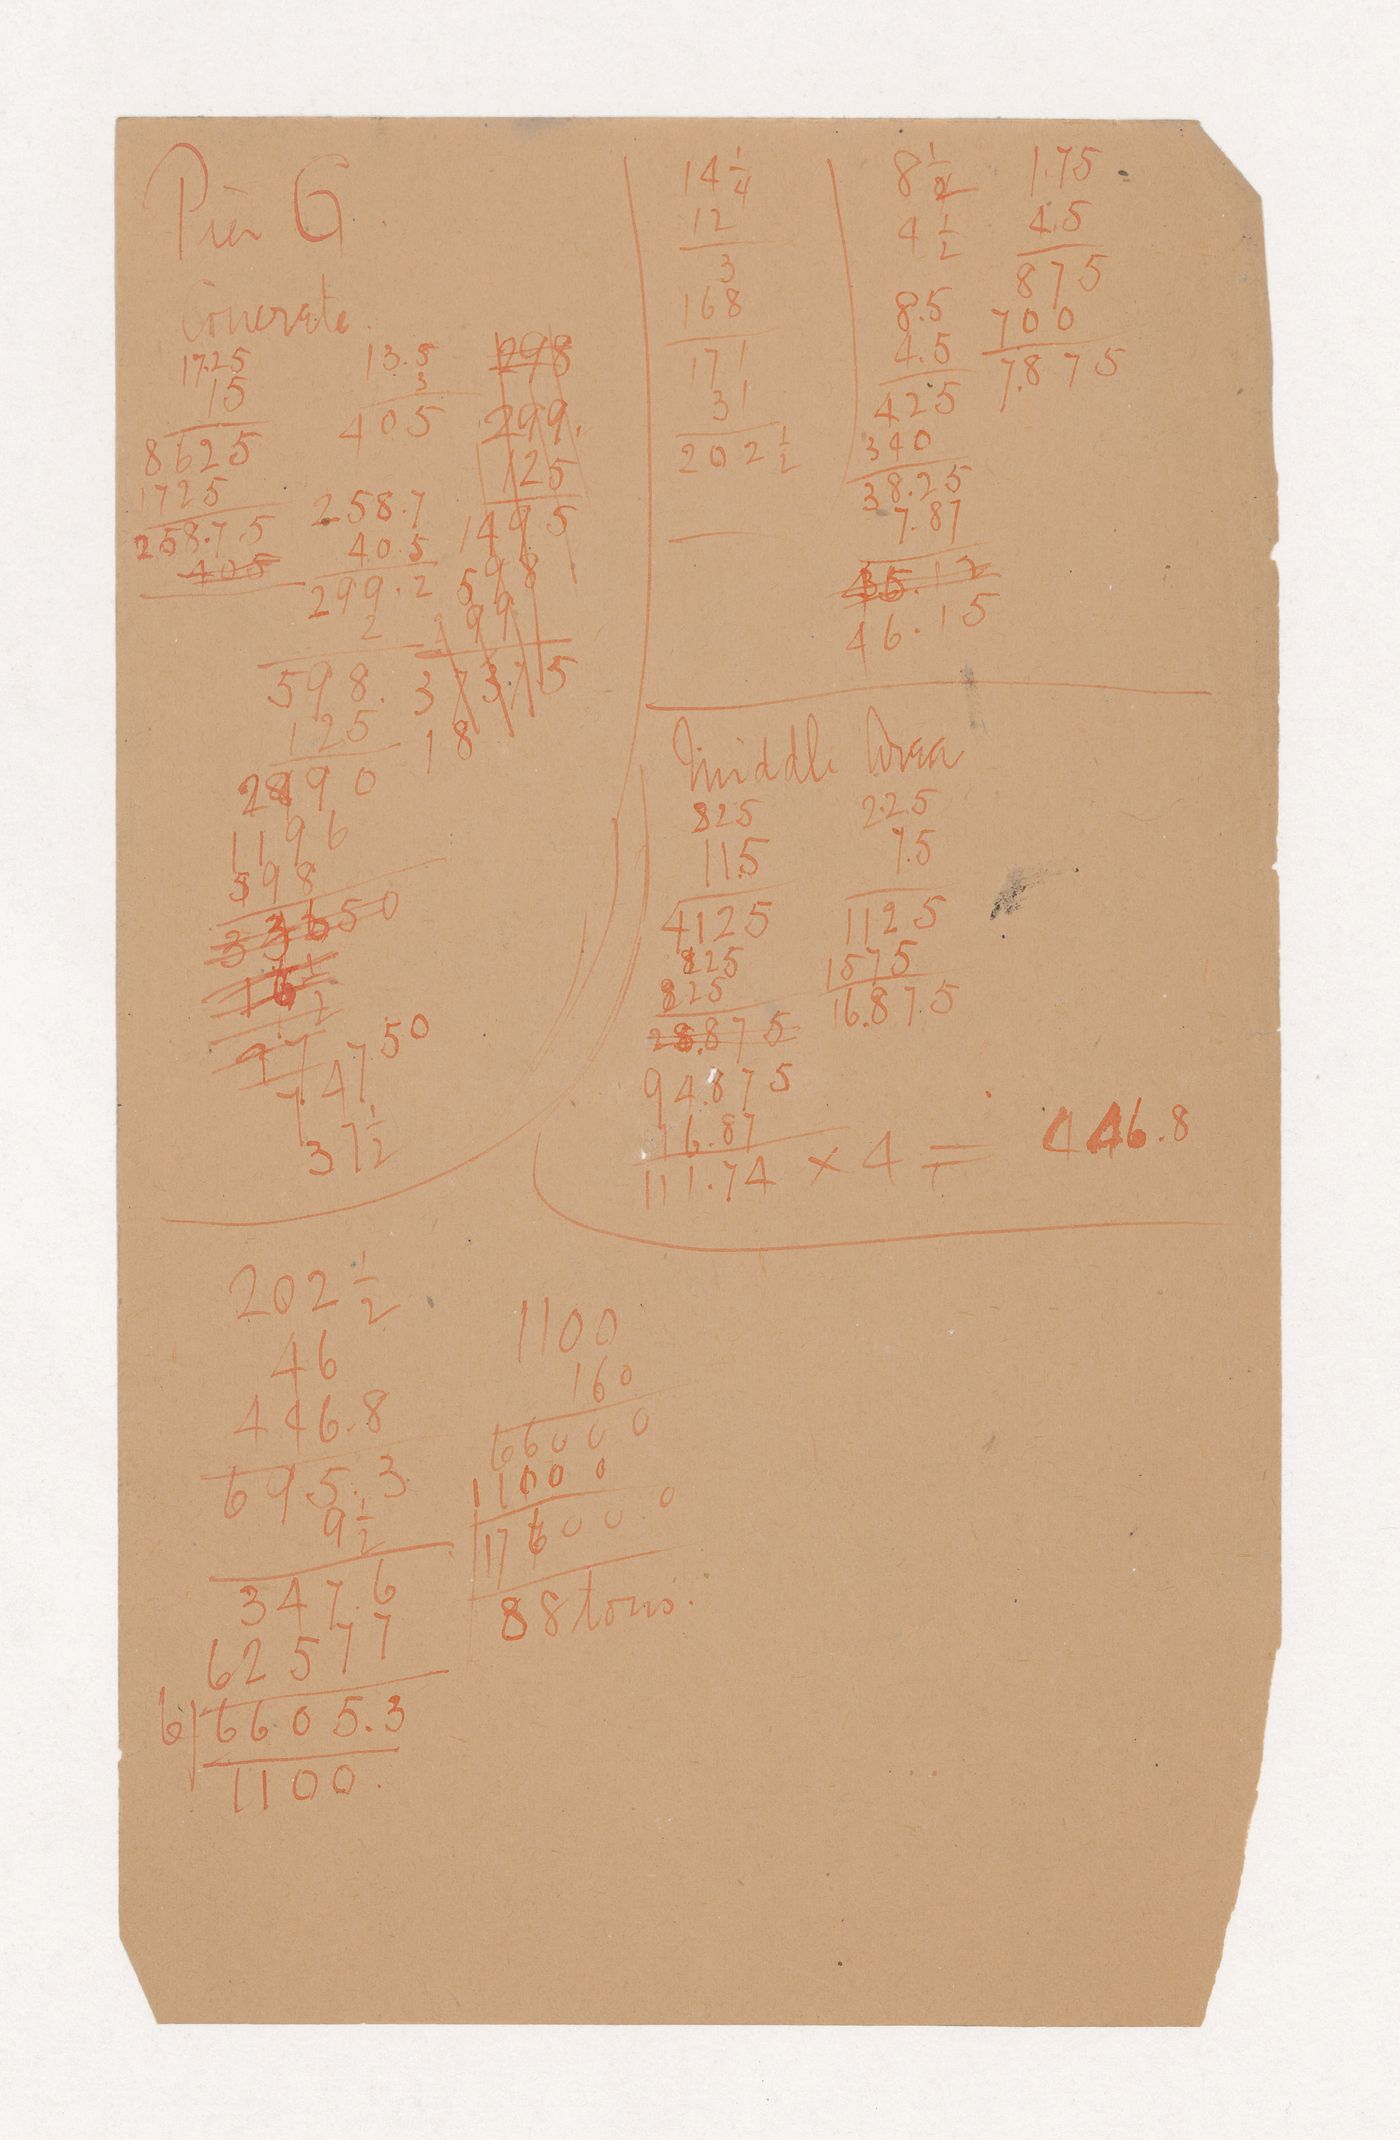 Pier G.
Concrete.
17.25
15
8625
1725
258.7.5
405
13.5
3
405
258.7
40.5
299.2
2
598.
125
2990
1196
598
33650
16 1/2
97
7.47.50
37 1/2
298
299.
125
1495
598
299
37375
18
14 1/4
12
3
168
171
31
202 1/2
8 1/2
4 1/2
8.5
4.5
425
340
38.25
7.87
45.12
46.15
1.75
4.5
875
700
7.875
Middle Area
825
11.5
4125
825
825
28.875
94.875
16.87
111.74 × 4 = 446.8
2.25
7.5
1125
1575
16.875
202 1/2
46
446.8
695.3
9 1/2
347.6
62577
6 | 6605.3
1100.
1100
160
66000
1100 0
176000
88 tons.